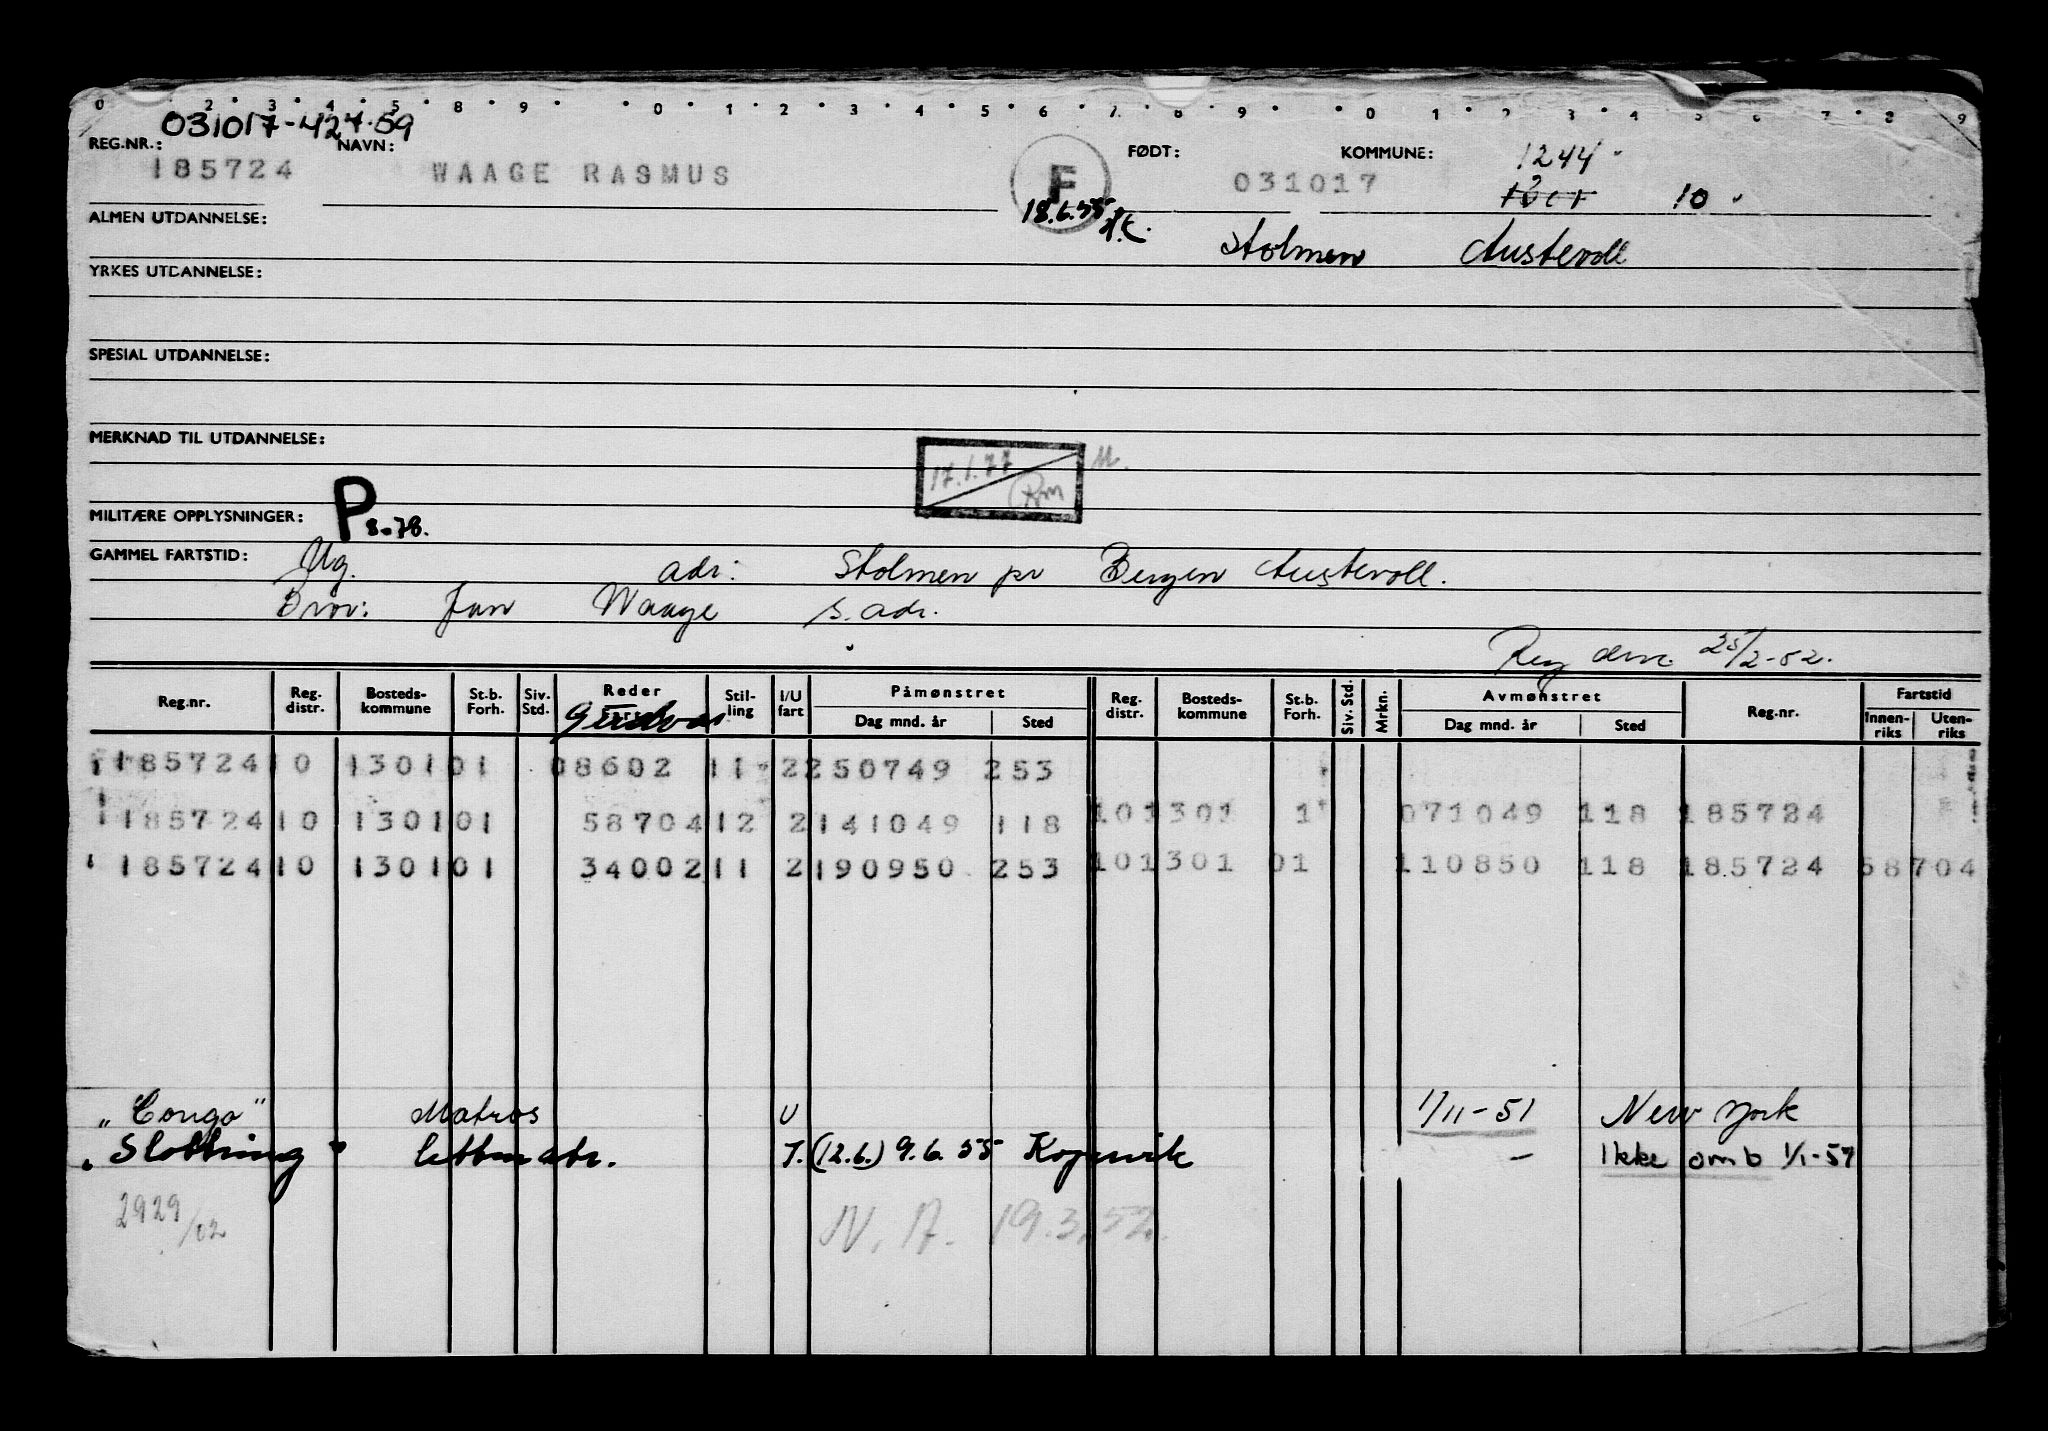 0 2 3 4 5 8 9 0 1 2 3 4 5 6 7 8 9 0 1 2 3 4 5 6 7 8 9
031017-424.59
REG.NR.: NAVN: FØDT: KOMMUNE: 1244
185724 WAAGE RASMUS F 031017 10
18.6.55
ALMEN UTDANNELSE: Stolmen Austevoll
YRKES UTDANNELSE:
SPESIAL UTDANNELSE:
MERKNAD TIL UTDANNELSE:
17.1.77
MILITÆRE OPPLYSNINGER: P 8-78.
GAMMEL FARTSTID: Ug. adr: Stolmen pr Bergen Austevoll.
Bror: Jan Waage s. adr.
Reg 25/2-52.
Reg.nr. Reg. distr. Bosteds-kommune St.b. Forh. Siv. Std. Reder Stil-ling I/U fart Påmønstret Dag mnd. år Sted Reg. distr. Bosteds-kommune St.b. Forh. Siv. Std. Mrkn. Avmønstret Dag mnd. år Sted Reg.nr. Fartstid Innen-riks Uten-riks
185724 10 1301 01 08602 11 2 250749 253
185724 10 1301 01 58704 12 2 141049 118 10 1301 1 071049 118 185724
185724 10 1301 01 34002 11 2 190950 253 10 1301 01 110850 118 185724 58704
"Congo" Matros U 1/11-51 New York
"Slottring" lettmatr. I. (12.6.) 9.6.55 Kopervik - Ikke omb 1/1-57
2929/02 N. A. 19.3.52.